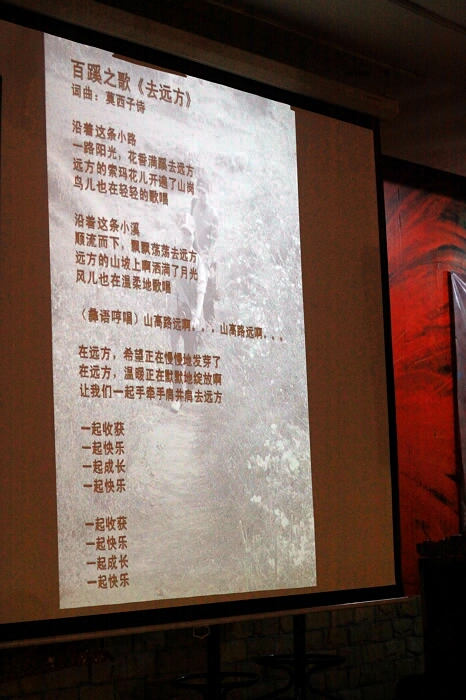 百蹊之歌《去远方》
词曲：莫西子诗
沿着这条小路
一路阳光，花香满飘去远方
远方的索玛花儿开遍了山岗
鸟儿也在轻轻的歌唱
沿着这条小溪
顺流而下，飘飘荡荡去远方
远方的山坡上啊洒满了月光
风儿也在温柔地歌唱
（彝语哼唱）山高路远啊。。，山高路远啊。。。
在远方，希望正在慢慢地发芽了
在远方，温暖正在默默地绽放啊
让我们一起手牵手肩并肩去远方
一起收获
一起快乐
一起成长
一起快乐
一起收获
一起快乐
一起成长
一起快乐